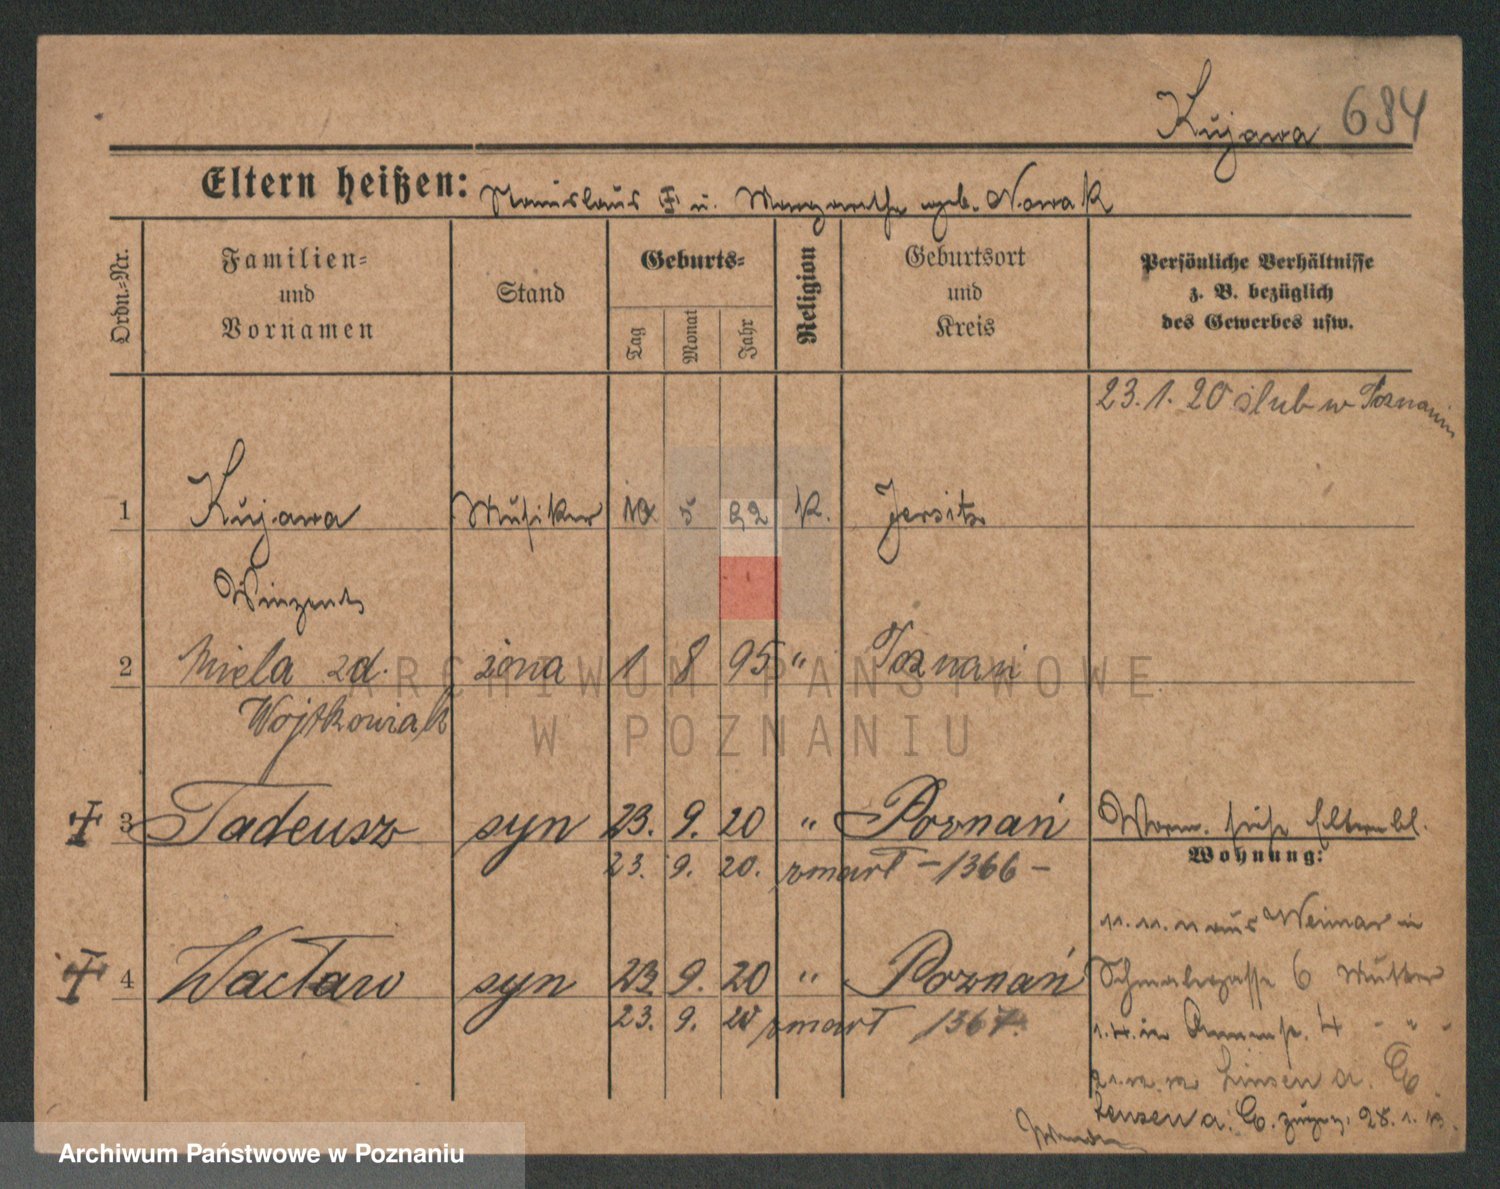 Kujawa 684
Eltern heißen: Stanislaus ✝ u. Margarethe geb. Nowak
Ordn.=Nr.
Familien=
und
Vornamen
Stand
Geburts=
Tag
Monat
Jahr
Religion
Geburtsort
und
Kreis
Persönliche Verhältnisse
z. B. bezüglich
des Gewerbes usw.
23. 1. 20 ślub w Poznaniu
1 Kujawa Musiker 5 92 k. Jersitz
Winzent
2 Miela zd. żona 1 8 95 " Poznań
Wojtkowiak
✝ 3 Tadeusz syn 23. 9. 20 " Poznań
Vorm. siehe Elternbl.
23. 9. 20. zmarł – 1366 –
Wohnung:
11. 11. 11 aus Weimar in
✝ 4 Wacław syn 23 9. 20 " Poznań
Schmalegasse 6 Mutter
23. 9. 20 zmarł 1367.
1. 4. in 4 - " -
Linsen a. E.
a. E. 28. 1.
Wenden
ARCHIWUM PAŃSTWOWE
W POZNANIU
Archiwum Państwowe w Poznaniu